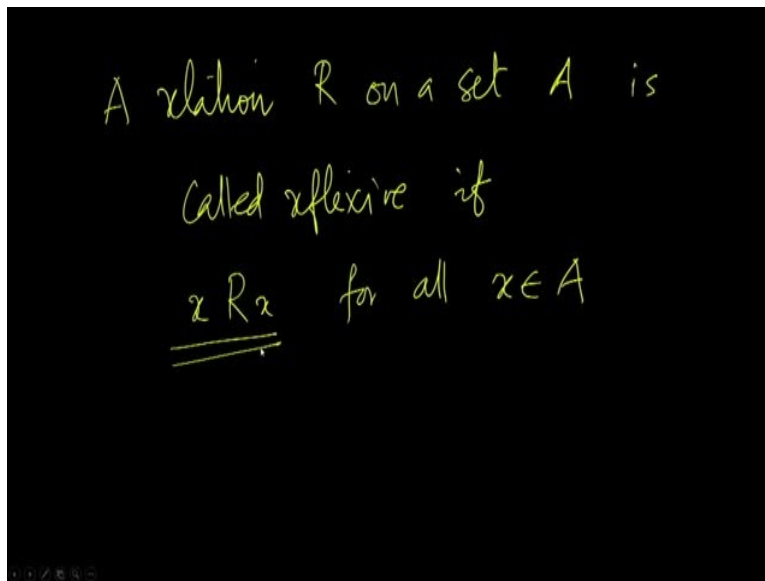 A relation R on a set A is
called reflexive if
x R x for all x ∈ A